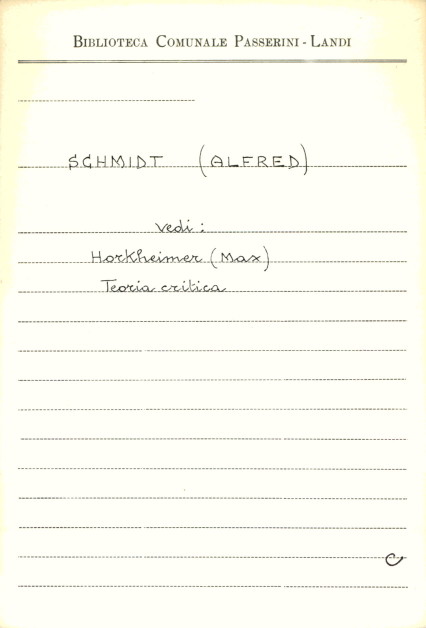 BIBLIOTECA COMUNALE PASSERINI - LANDI
SCHMIDT (ALFRED)
vedi :
Horkheimer (Max)
Teoria critica
C